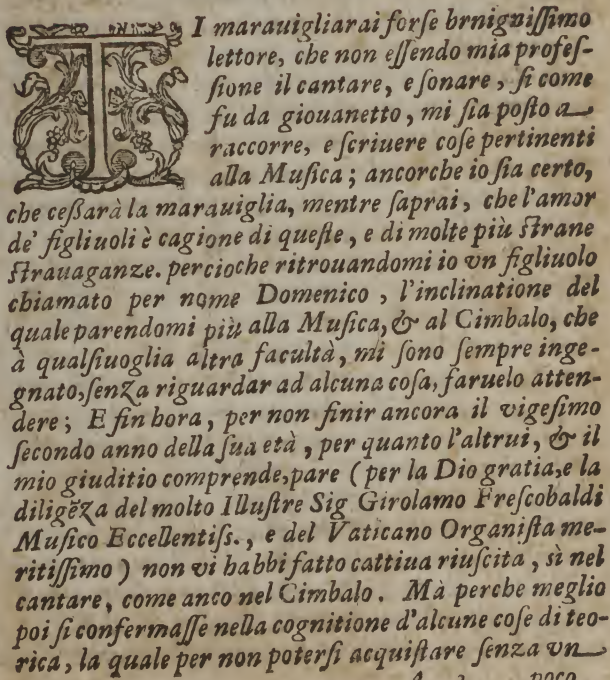 TI marauigliarai forſe brnigniſſimo
lettore, che non eſſendo mia profeſ-
ſione il cantare, e ſonare, ſi come
fu da giouanetto, mi ſia poſto a
raccorre, e ſcriuere coſe pertinenti
alla Muſica; ancorche io ſia certo,
che ceßarà la marauiglia, mentre ſaprai, che l'amor
de' figliuoli è cagione di queſte, e di molte più ſtrane
ſtrauaganze. percioche ritrouandomi io vn figliuolo
chiamato per nome Domenico, l'inclinatione del
quale parendomi più alla Muſica, & al Cimbalo, che
à qualſiuoglia altra facultà, mi ſono ſempre inge-
gnato, ſenza riguardar ad alcuna coſa, faruelo atten-
dere; E fin hora, per non finir ancora il vigeſimo
ſecondo anno della ſua età, per quanto l'altrui, & il
mio giuditio comprende, pare (per la Dio gratia, e la
diligẽza del molto Illuſtre Sig Girolamo Freſcobaldi
Muſico Eccellentiſs., e del Vaticano Organiſta me-
ritiſſimo) non vi habbi fatto cattiua riuſcita, sì nel
cantare, come anco nel Cimbalo. Mà perche meglio
poi ſi confermaſſe nella cognitione d'alcune coſe di teo-
rica, la quale per non poterſi acquiſtare ſenza vn
poco